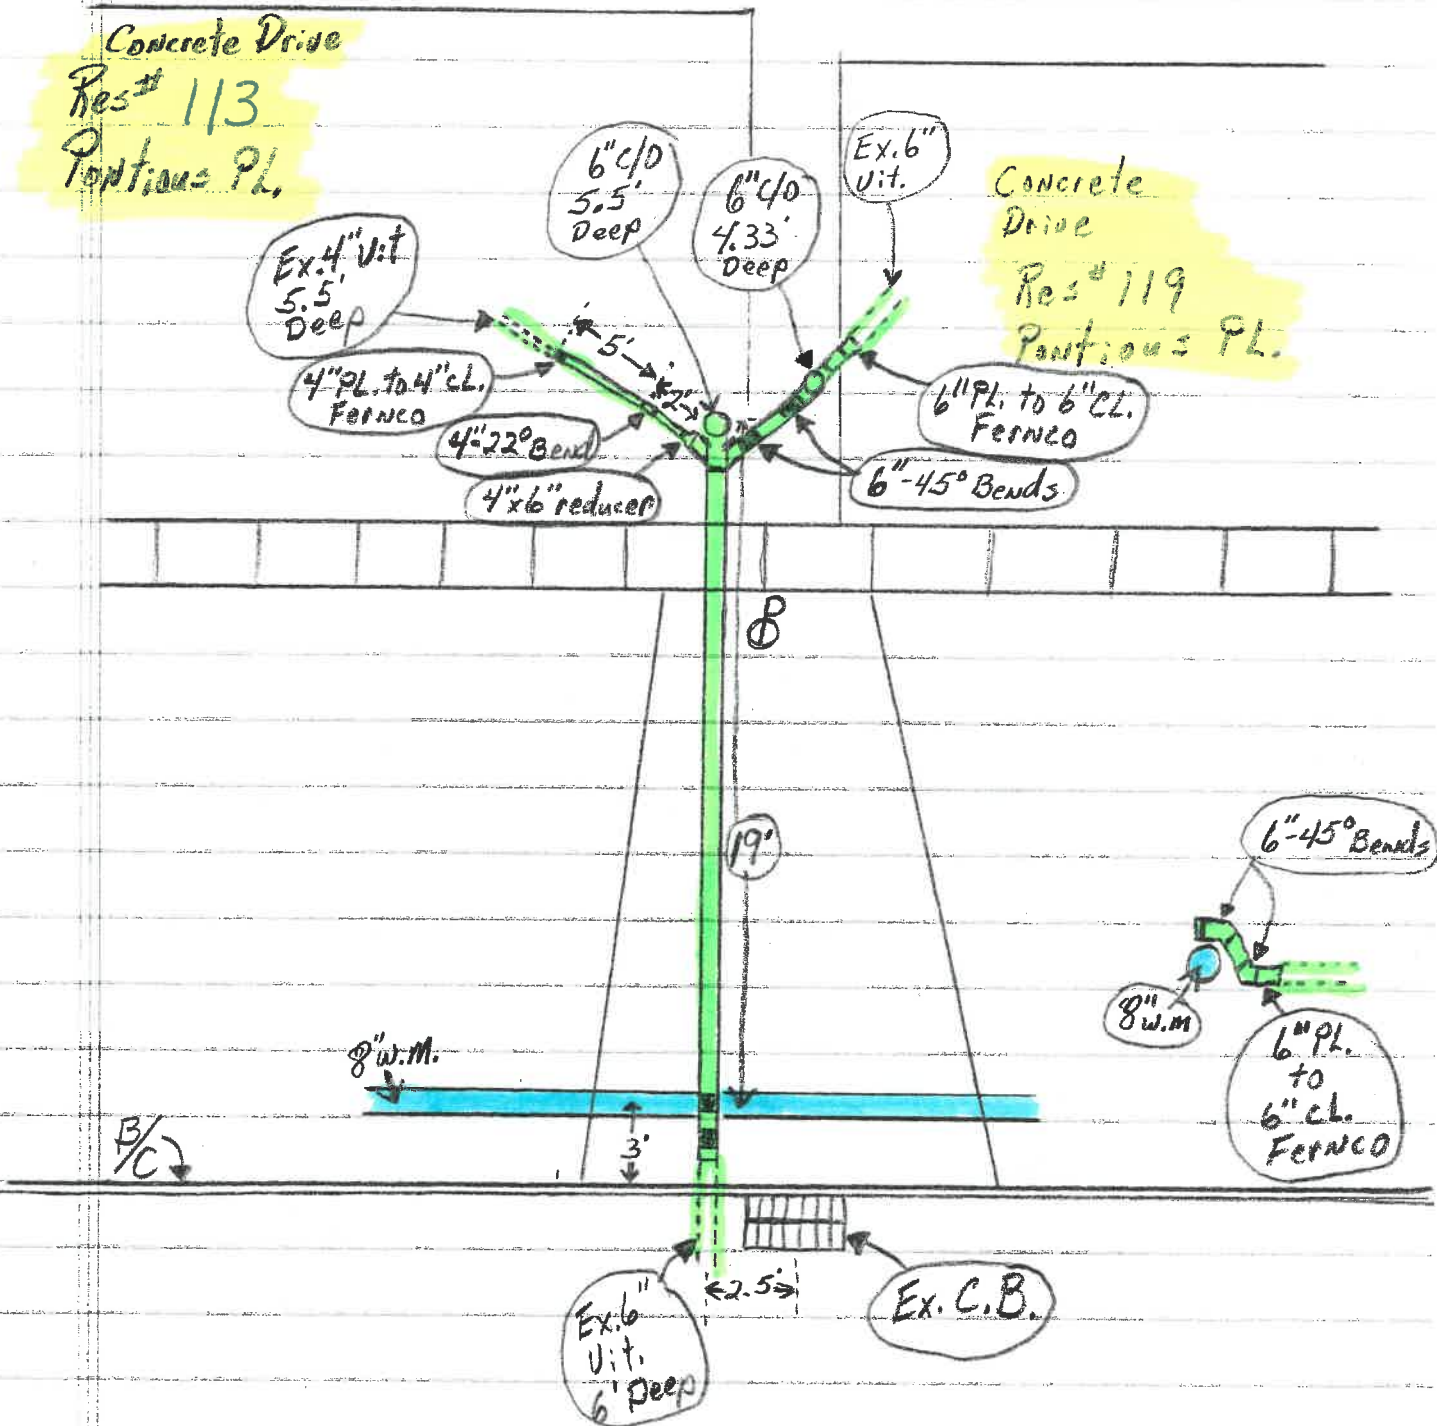 Concrete Drive
Res# 113
Pontious PL.
6" C/O
5.5'
Deep
6" C/O
4.33'
Deep
Ex. 6"
Vit.
Concrete
Drive
Res# 119
Pontious PL.
Ex. 4" Vit
5.5'
Deep
5'
2'
4" PL. to 4" CL.
Fernco
4"-22° Bend
4"x6" reducer
6" PL. to 6" CL.
Fernco
6"-45° Bends
P
19'
6"-45° Bends
8"
W.M
6" PL.
to
6" CL.
Fernco
8" W.M.
3'
B/C
2.5'
Ex. 6"
Vit.
6' Deep
Ex. C.B.